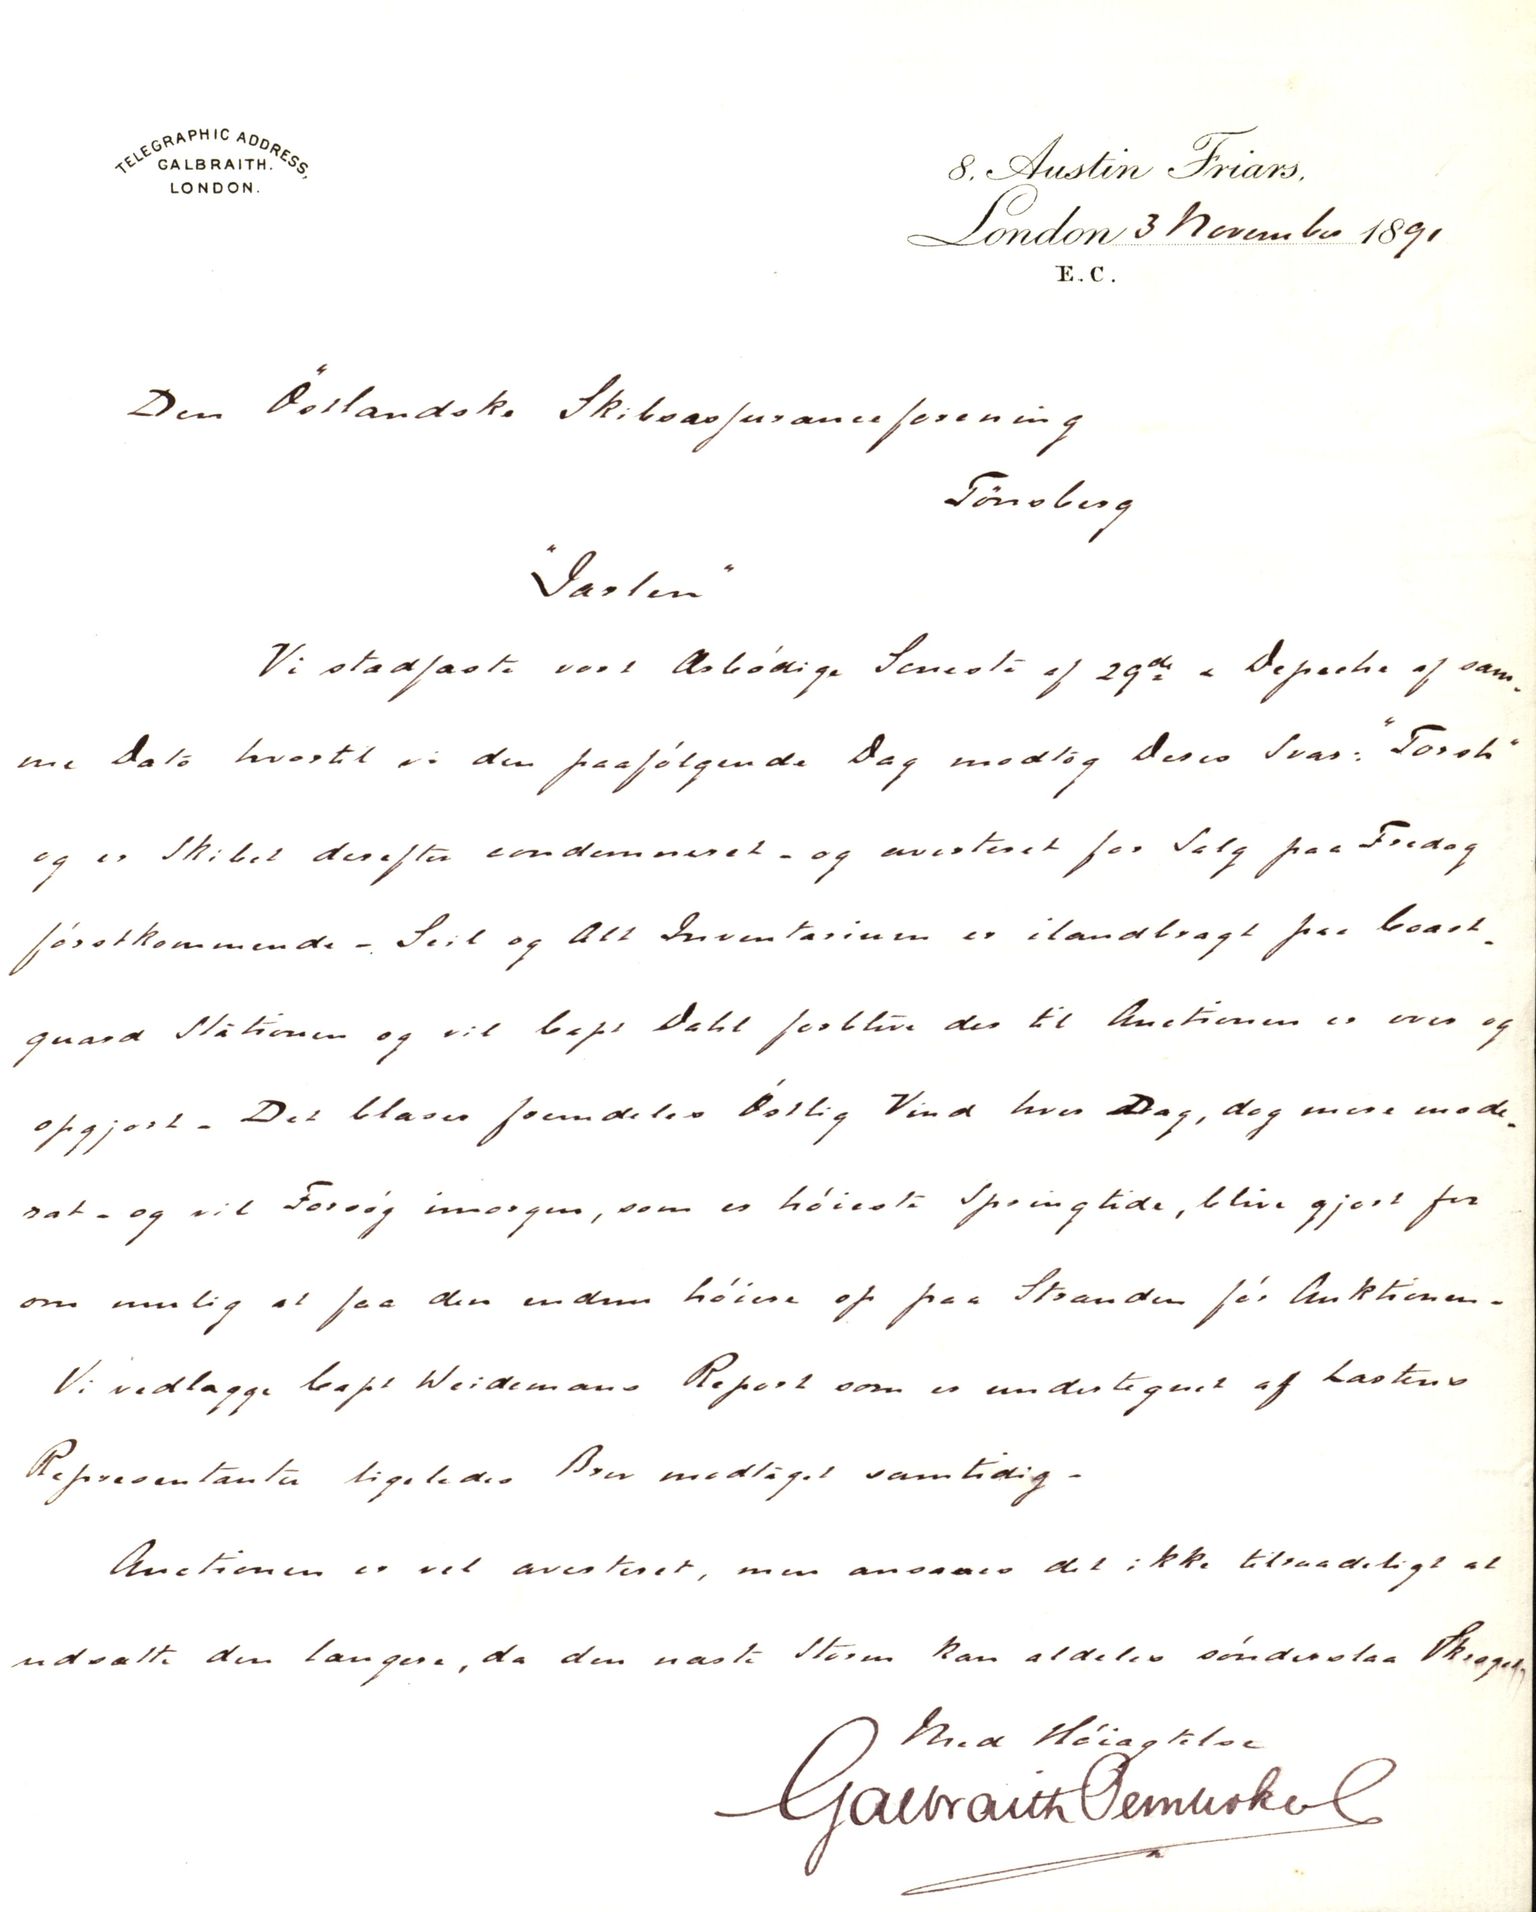 TELEGRAPHIC ADDRESS,
GALBRAITH.
LONDON.
8. Austin Friars.
London 3 November 1891
E.C.
Den Östlandske Skibsassuranceforening
Tönsberg
"Jarlen"
Vi stadfæste vort Ærbódige Seneste af 29de & Depeche af sam-
me Dato hvortil vi den paafólgende Dag modtog Deres Svar: "Torsk"
og er Skibet derefter condemneret - og averteret for Salg paa Fredag
fórstkommende - Seil og Alt Inventarium er ilandbragt paa Coast-
guard Stationen og vil Capt Dahl forblive der til Auctionen er over og
opgjort - Det blæser fremdeles Óstlig Vind hver Dag, dog mere mode-
rat - og vil Forsóg imorgen, som er hóieste Springtide, blive gjort for
om mulig at faa den endnu hóiere op paa Stranden fór Auktionen -
Vi vedlægge Capt Weidemans Report som er undertegnet af Lastens
Representanter ligeledes Brev modtaget samtidig -
Auctionen er vel averteret, men ansaaes det ikke tilraadeligt at
udsætte den længere, da den næste Storm kan aldeles sónderslaa Skroget,
Med Hóiagtelse
Galbraith Pembroke & C